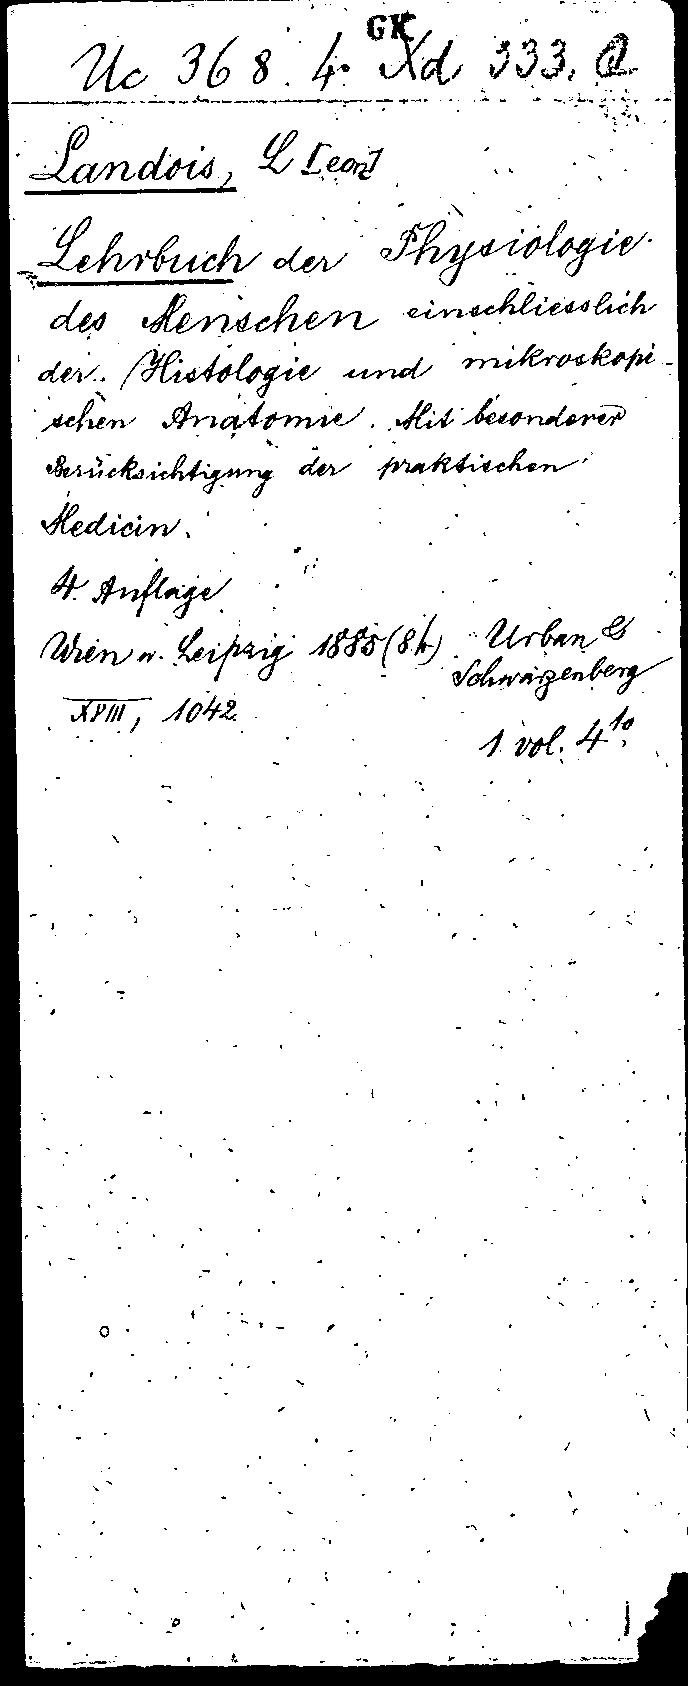 GK
Uc 368. 4° Xd 333. Q
Landois, L [eon]
Lehrbuch der Physiologie
des Menschen einschliesslich
der Histologie und mikroskopi-
schen Anatomie. Mit besonderer
Berücksichtigung der praktischen
Medicin.
4. Auflage
Wien u. Leipzig 1885 (84) Urban &
Schwarzenberg
XVIII, 1042
1 vol. 4to.